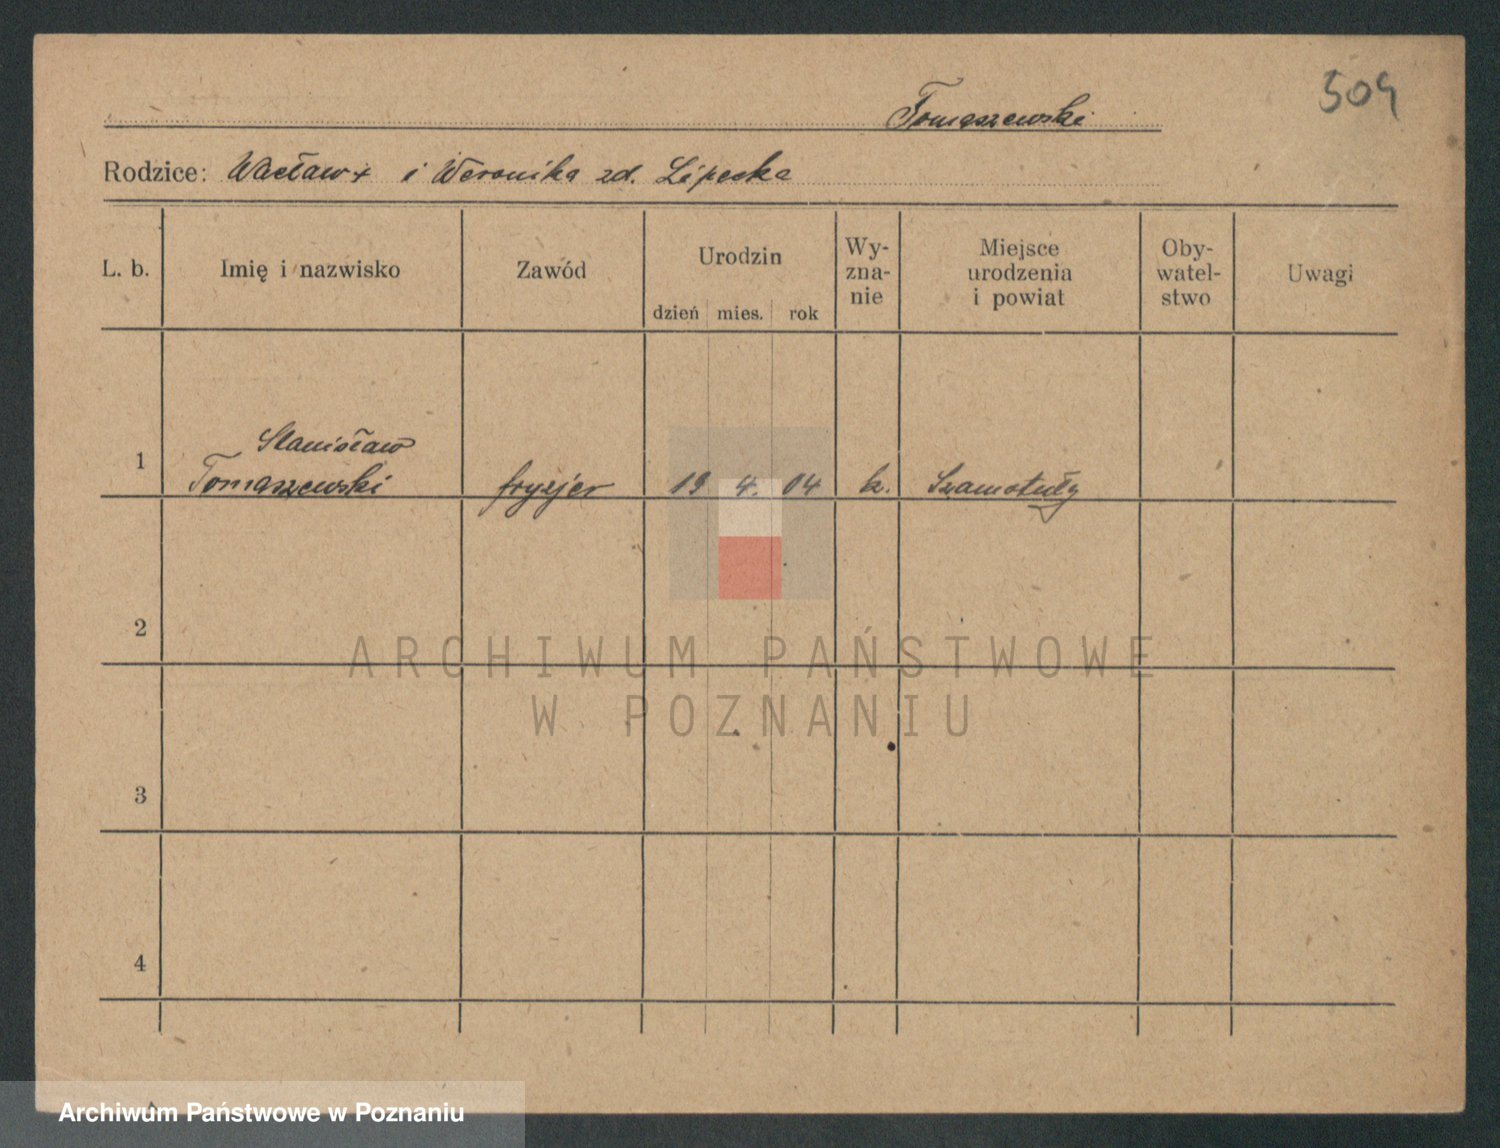 504
Tomaszewski
Rodzice: Wacław + i Weronika zd. Lipecka
L. b. Imię i nazwisko Zawód Urodzin Wy-
zna-
nie Miejsce
urodzenia
i powiat Oby-
watel-
stwo Uwagi
dzień mies. rok
Stanisław
1 Tomaszewski fryzjer 19 4. 04 k. Szamotuły
2
3
4
ARCHIWUM PAŃSTWOWE
W POZNANIU
Archiwum Państwowe w Poznaniu